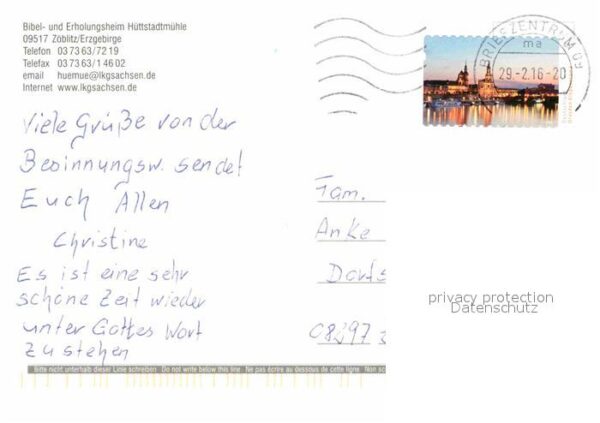 Bibel- und Erholungsheim Hüttstadtmühle
09517 Zöblitz/Erzgebirge
Telefon 03 73 63/72 19
Telefax 03 73 63/1 46 02
email huemue@lkgsachsen.de
Internet www.lkgsachsen.de
BRIEFZENTRUM 09
ma
29-2.16-20
Viele Grüße von der
Besinnungsw. sendet
Euch Allen
Christine
Es ist eine sehr
schöne Zeit wieder
unter Gottes Wort
zu stehen
Fam.
Anke
Dorfs
08297
privacy protection
Datenschutz
Bitte nicht unterhalb dieser Linie schreiben Do not write below this line Ne pas écrire au dessous de cette ligne Non sc